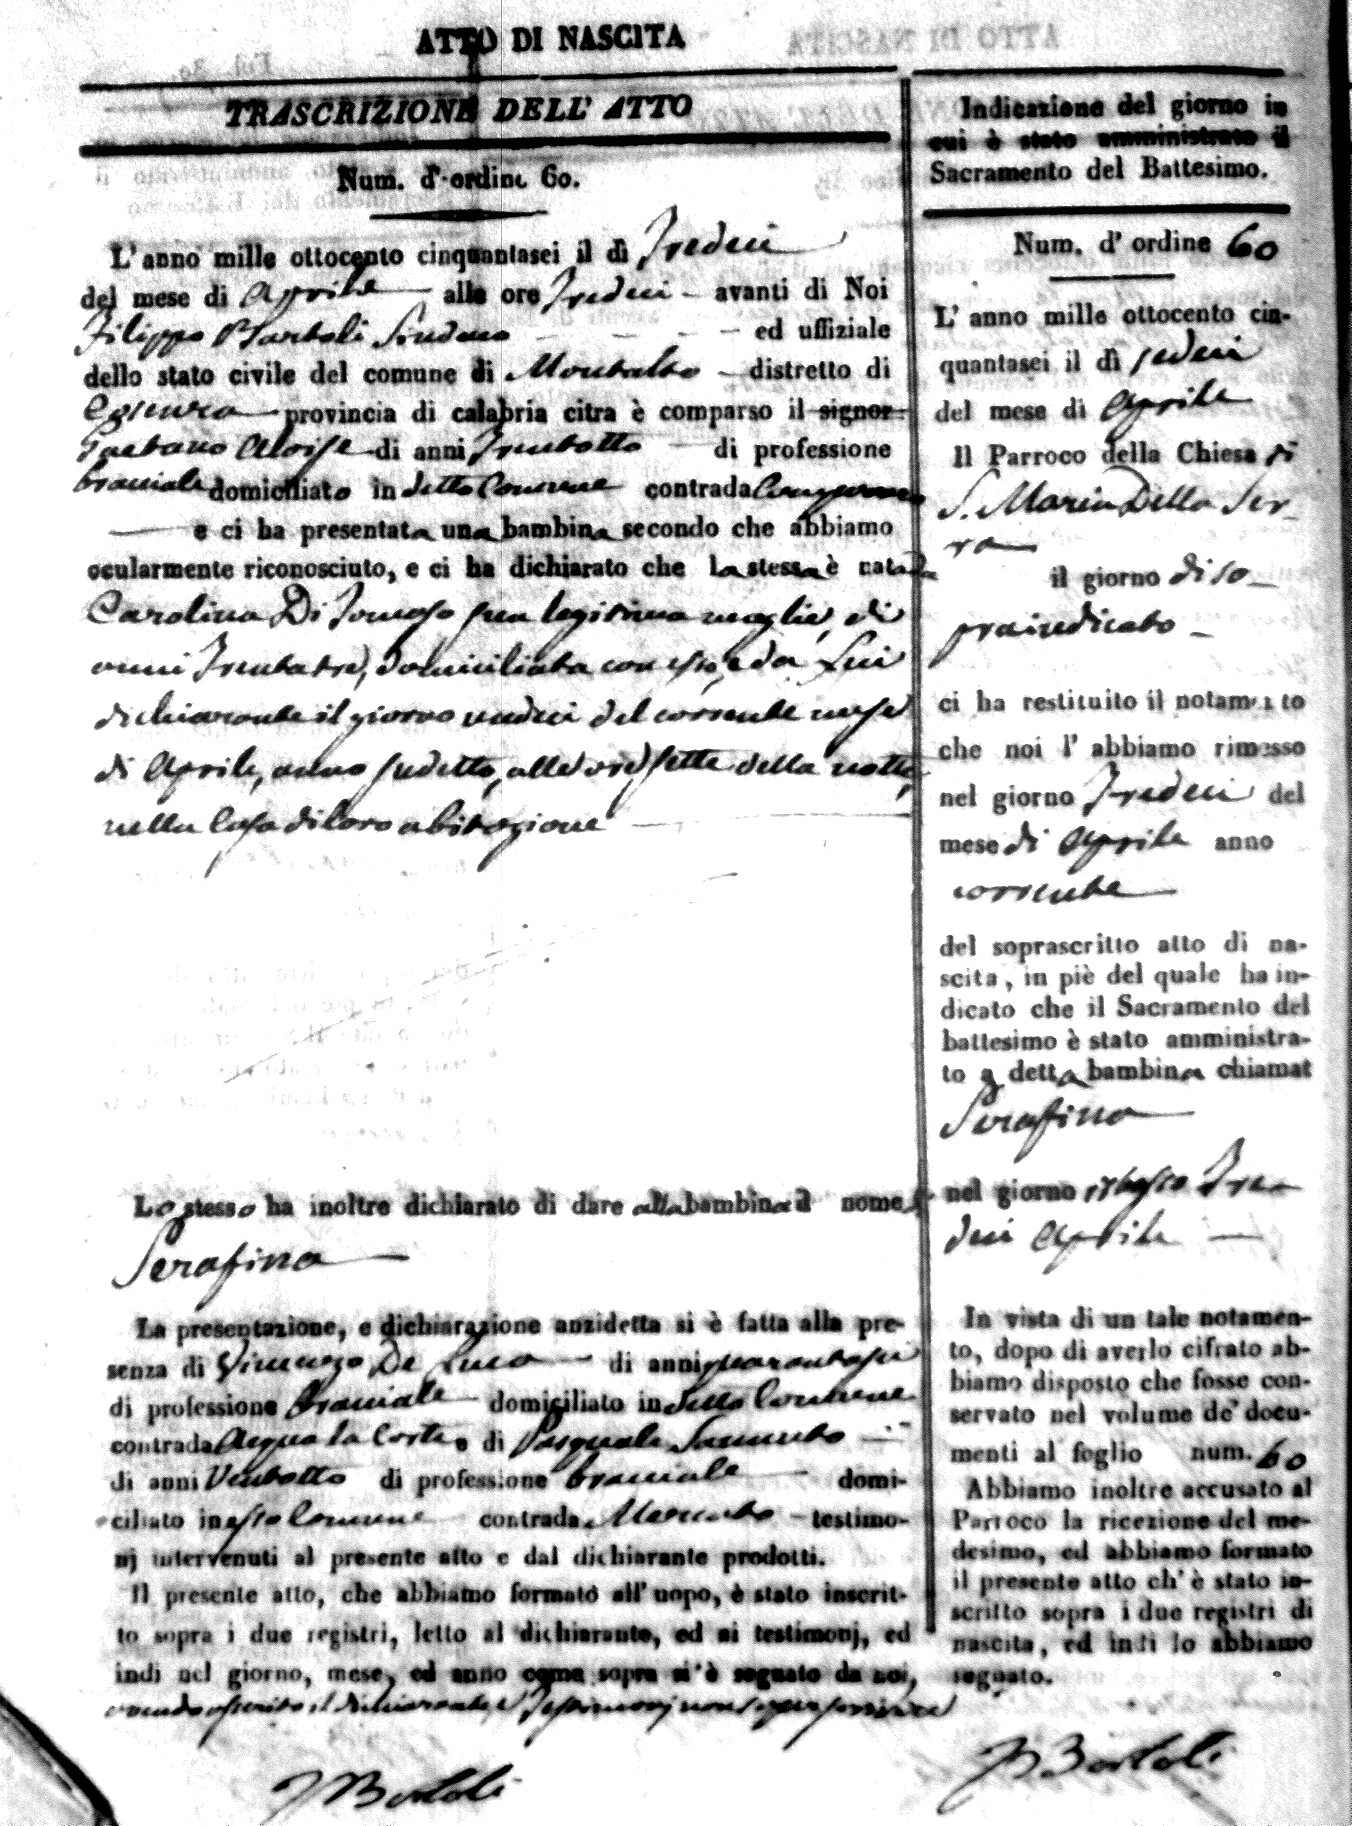 ATTO DI NASCITA
TRASCRIZIONE DELL' ATTO
Num. d'ordine 60.
L' anno mille ottocento cinquantasei il dì Tredici
del mese di Aprile alle ore Tredici avanti di Noi
Filippo Bartoli Sindaco ed uffiziale
dello stato civile del comune di Montalto distretto di
Cosenza provincia di calabria citra è comparso il signor
Gaetano Aloise di anni Trentotto di professione
bracciale domiciliato in detto Comune contrada
e ci ha presentata una bambina secondo che abbiamo
ocularmente riconosciuto, e ci ha dichiarato che la stessa è nata da
Carolina Di Tomaso sua legitima moglie, di
anni Trentatre, domiciliata con esso, e da Lui
dichiarante il giorno undici del corrente mese
di Aprile, anno sudetto, alle ore sette della notte,
nella Casa di loro abitazione
Lo stesso ha inoltre dichiarato di dare alla bambina il nome di
Serafina
La presentazione, e dichiarazione anzidetta si è fatta alla pre-
senza di Vincenzo De Luca di anni quarantasei
di professione bracciale domiciliato in detto Comune
contrada Acqua la Corte e di Pasquale
di anni Ventotto di professione bracciale domi-
ciliato in esso Comune contrada testimo-
nj intervenuti al presente atto e dal dichiarante prodotti.
Il presente atto, che abbiamo formato all' uopo, è stato inscrit-
to sopra i due registri, letto al dichiarante, ed ai testimonj, ed
indi nel giorno, mese, ed anno come sopra si'è segnato da noi,
avendo asserito il dichiarante, e Testimonj non saper scrivere
F Bartoli
Indicazione del giorno in
cui è stato amministrato il
Sacramento del Battesimo.
Num. d' ordine 60
L' anno mille ottocento cin-
quantasei il dì sedici
del mese di Aprile
Il Parroco della Chiesa di
S. Maria Della Ser-
ra
il giorno di so-
praindicato
ci ha restituito il notamento
che noi l' abbiamo rimesso
nel giorno Tredici del
mese di Aprile anno
corrente
del soprascritto atto di na-
scita, in piè del quale ha in-
dicato che il Sacramento del
battesimo è stato amministra-
to a detta bambina chiamat
Serafina
nel giorno istesso Tre-
dici Aprile
In vista di un tale notamen-
to, dopo di averlo cifrato ab-
biamo disposto che fosse con-
servato nel volume de' docu-
menti al foglio num. 60
Abbiamo inoltre accusato al
Parroco la ricezione del me-
desimo, ed abbiamo formato
il presente atto ch' è stato in-
scritto sopra i due registri di
nascita, ed indi lo abbiamo
segnato.
F Bartoli